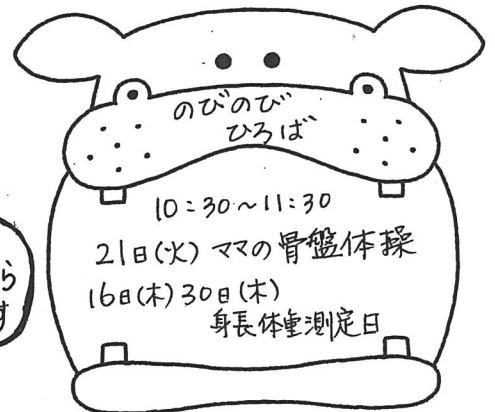 のびのび
ひろば
10:30~11:30
21日(火) ママの骨盤体操
16日(木) 30日(木)
身長体重測定日
ら
す